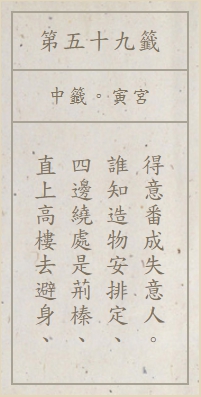 第五十九籤
中籤。寅宮
直上高樓去避身、
四邊繞處是荊榛、
誰知造物安排定、
得意番成失意人。